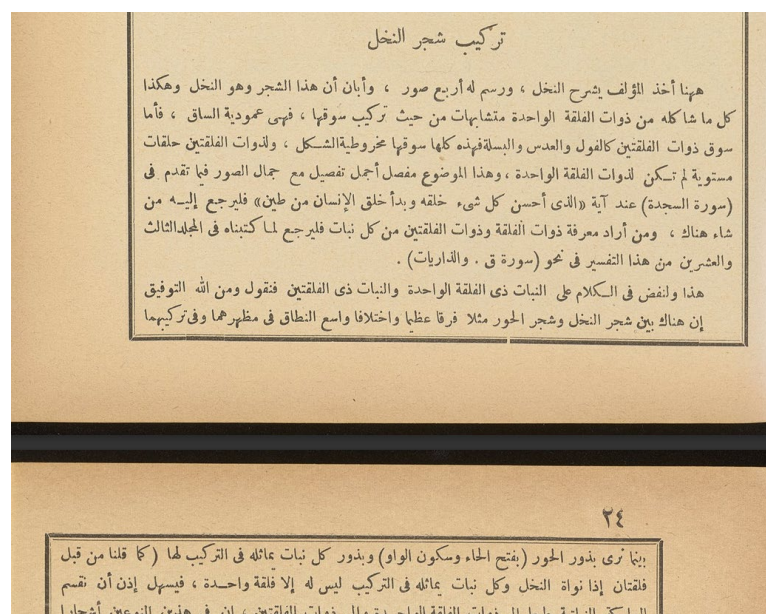 تركيب شجر النخل
ههنا أخذ المؤلف يشرح النخل ، ورسم له أربع صور ، وأبان أن هذا الشجر وهو النخل وهكذا
كل ما شاكله من ذوات الفلقة الواحدة متشابهات من حيث تركيب سوقها ، فهى عمودية الساق ، فأما
سوق ذوات الفلقتين كالفول والعدس والبسلة فهذه كلها سوقها مخروطية الشكل ، ولذوات الفلقتين حلقات
مستوية لم تكن لذوات الفلقة الواحدة ، وهذا الموضوع مفصل أجمل تفصيل مع جمال الصور فيا تقدم فى
(سورة السجدة) عند آية «الذى أحسن كل شىء خلقه وبدأ خلق الإنسان من طين» فليرجع إليه من
شاء هناك ، ومن أراد معرفة ذوات الفلقة وذوات الفلقتين من كل نبات فليرجع لما كتبناه فى المجلد الثالث
والعشرين من هذا التفسير فى نحو (سورة ق . والذاريات) .
هذا ولنفض فى الكلام على النبات ذى الفلقة الواحدة والنبات ذى الفلقتين فنقول ومن الله التوفيق
إن هناك بين شجر النخل وشجر الحور مثلا فرقا عظيما واختلافا واسع النطاق فى مظهرهما وفى تركيبهما
٢٤
بينما ترى بذور الحور (بفتح الحاء وسكون الواو) وبذور كل نبات يماثله فى التركيب لها (كما قلنا من قبل
فلقتان إذا نواة النخل وكل نبات يماثله فى التركيب ليس له إلا فلقة واحدة ، فيسهل إذن أن نقسم